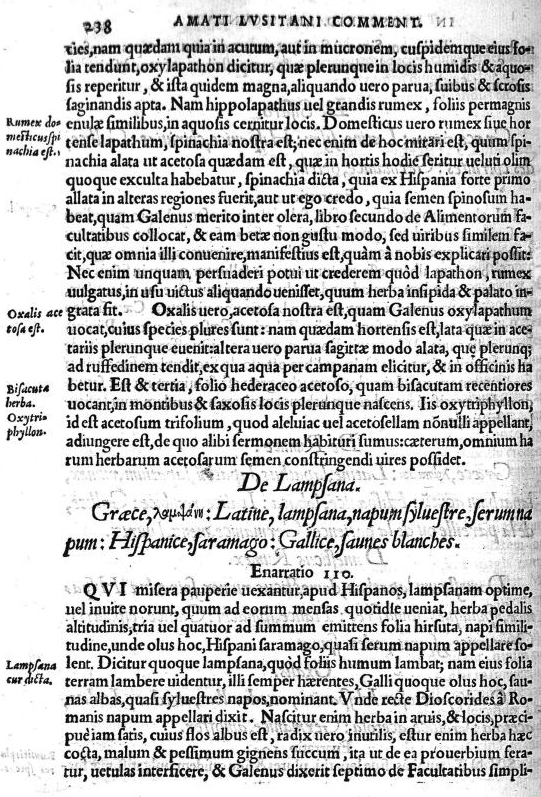 238 AMATI LVSITANI COMMENT. IN
ties, nam quædam quia in acutum, aut in mucronem, cuspidemque eius fo-
lia tendunt, oxylapathon dicitur, quæ plerunque in locis humidis & aquo-
sis reperitur, & ista quidem magna, aliquando uero parua, suibus & scrofis
saginandis apta. Nam hippolapathus uel grandis rumex, foliis permagnis
Rumex do-
mesticus spi
nachia est.
enulæ similibus, in aquosis cernitur locis. Domesticus uero rumex siue hor
tense lapathum, spinachia nostra est; nec enim de hoc mirari est, quum spi-
nachia alata ut acetosa quædam est, quæ in hortis hodie seritur ueluti olim
quoque exculta habebatur, spinachia dicta, quia ex Hispania forte primo
allata in alteras regiones fuerit, aut ut ego credo, quia semen spinosum ha-
beat, quam Galenus merito inter olera, libro secundo de Alimentorum fa-
cultatibus collocat, & eam betæ non gustu modo, sed uiribus similem fa-
cit, quæ omnia illi conuenire, manifestius est, quàm à nobis explicari possit:
Nec enim unquam persuaderi potui ut crederem quòd lapathon, rumex
uulgatus, in usu uictus aliquando uenisset, quum herba insipida & palato in-
Oxalis ace
tosa est.
grata sit. Oxalis uero, acetosa nostra est, quam Galenus oxylapathum
uocat, cuius species plures sunt: nam quædam hortensis est, lata quæ in ace-
tariis plerunque euenit: altera uero parua sagittæ modo alata, quę plerunq;
ad ruffedinem tendit, ex qua aqua per campanam elicitur, & in officinis ha
Bisacuta
herba.
Oxytri-
phyllon.
betur. Est & tertia, folio hederaceo acetoso, quam bisacutam recentiores
uocant, in montibus & saxosis locis plerunque nascens. Iis oxytriphyllon,
id est acetosum trifolium, quod aleluiac uel acetosellam nõnulli appellant,
adiungere est, de quo alibi sermonem habituri sumus: cæterum, omnium ha
rum herbarum acetosarum semen constringendi uires possidet.
De Lampsana.
Græce, λαμψάνη: Latine, lampsana, napum syluestre, serum na
pum: Hispanice, saramago: Gallice, saunes blanches.
Enarratio 110.
QVI misera pauperie uexantur, apud Hispanos, lampsanam optime,
uel inuite norunt, quum ad eorum mensas quotidie ueniat, herba pedalis
altitudinis, tria uel quatuor ad summum emittens folia hirsuta, napi simili-
tudine, unde olus hoc, Hispani saramago, quasi serum napum appellare so-
Lampsana
cur dicta.
lent. Dicitur quoque lampsana, quòd foliis humum lambat; nam eius folia
terram lambere uidentur, illi semper hærentes, Galli quoque olus hoc, sau-
nas albas, quasi syluestres napos, nominant. Vnde recte Dioscorides à Ro-
manis napum appellari dixit. Nascitur enim herba in aruis, & locis, præci-
puè iam satis, cuius flos albus est, radix uero inutilis, estur enim herba hæc
cocta, malum & pessimum gignens succum, ita ut de ea prouerbium fera-
tur, uetulas interficere, & Galenus dixerit septimo de Facultatibus simpli-